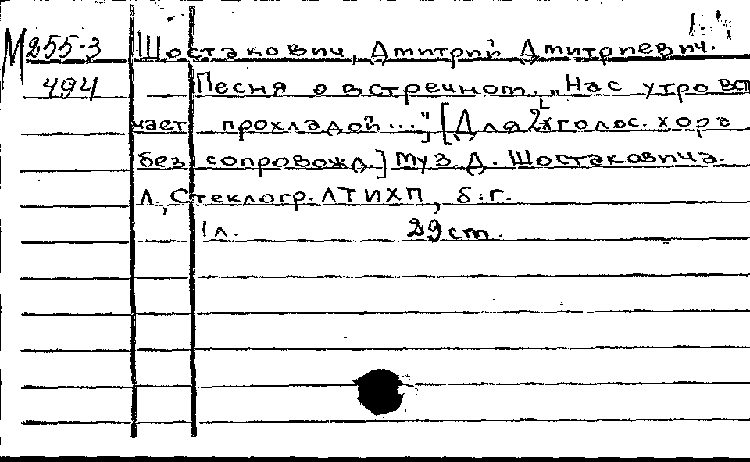 М255-3 Шостакович, Дмитрий Дмитриевич.
494 Песня о встречном. „Нас утро вст
чает прохладой...", [Для 2х голос. хора
без сопровожд.] муз. Д. Шостаковича.
Л., Стеклогр. ЛТИХП, б.г.
1 л. 29 cm.